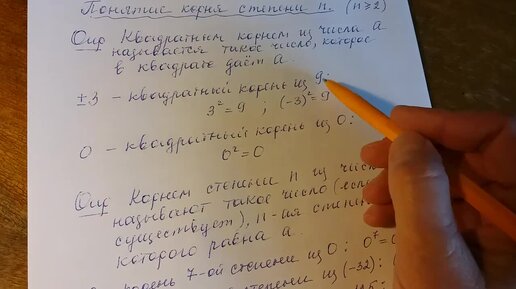 Понятие корня степени n. (n ⩾ 2)
Опр Квадратным корнем из числа а
называется такое число, которое
в квадрате даёт а.
±3 – квадратный корень из 9:
3² = 9 ; (-3)² = 9
0 – квадратный корень из 0:
0² = 0
Опр Корнем степени n из
называют такое число (если
существует), n-ия
которого равна а.
корень 7-ой степени из 0: 0⁷ =
из (-32):